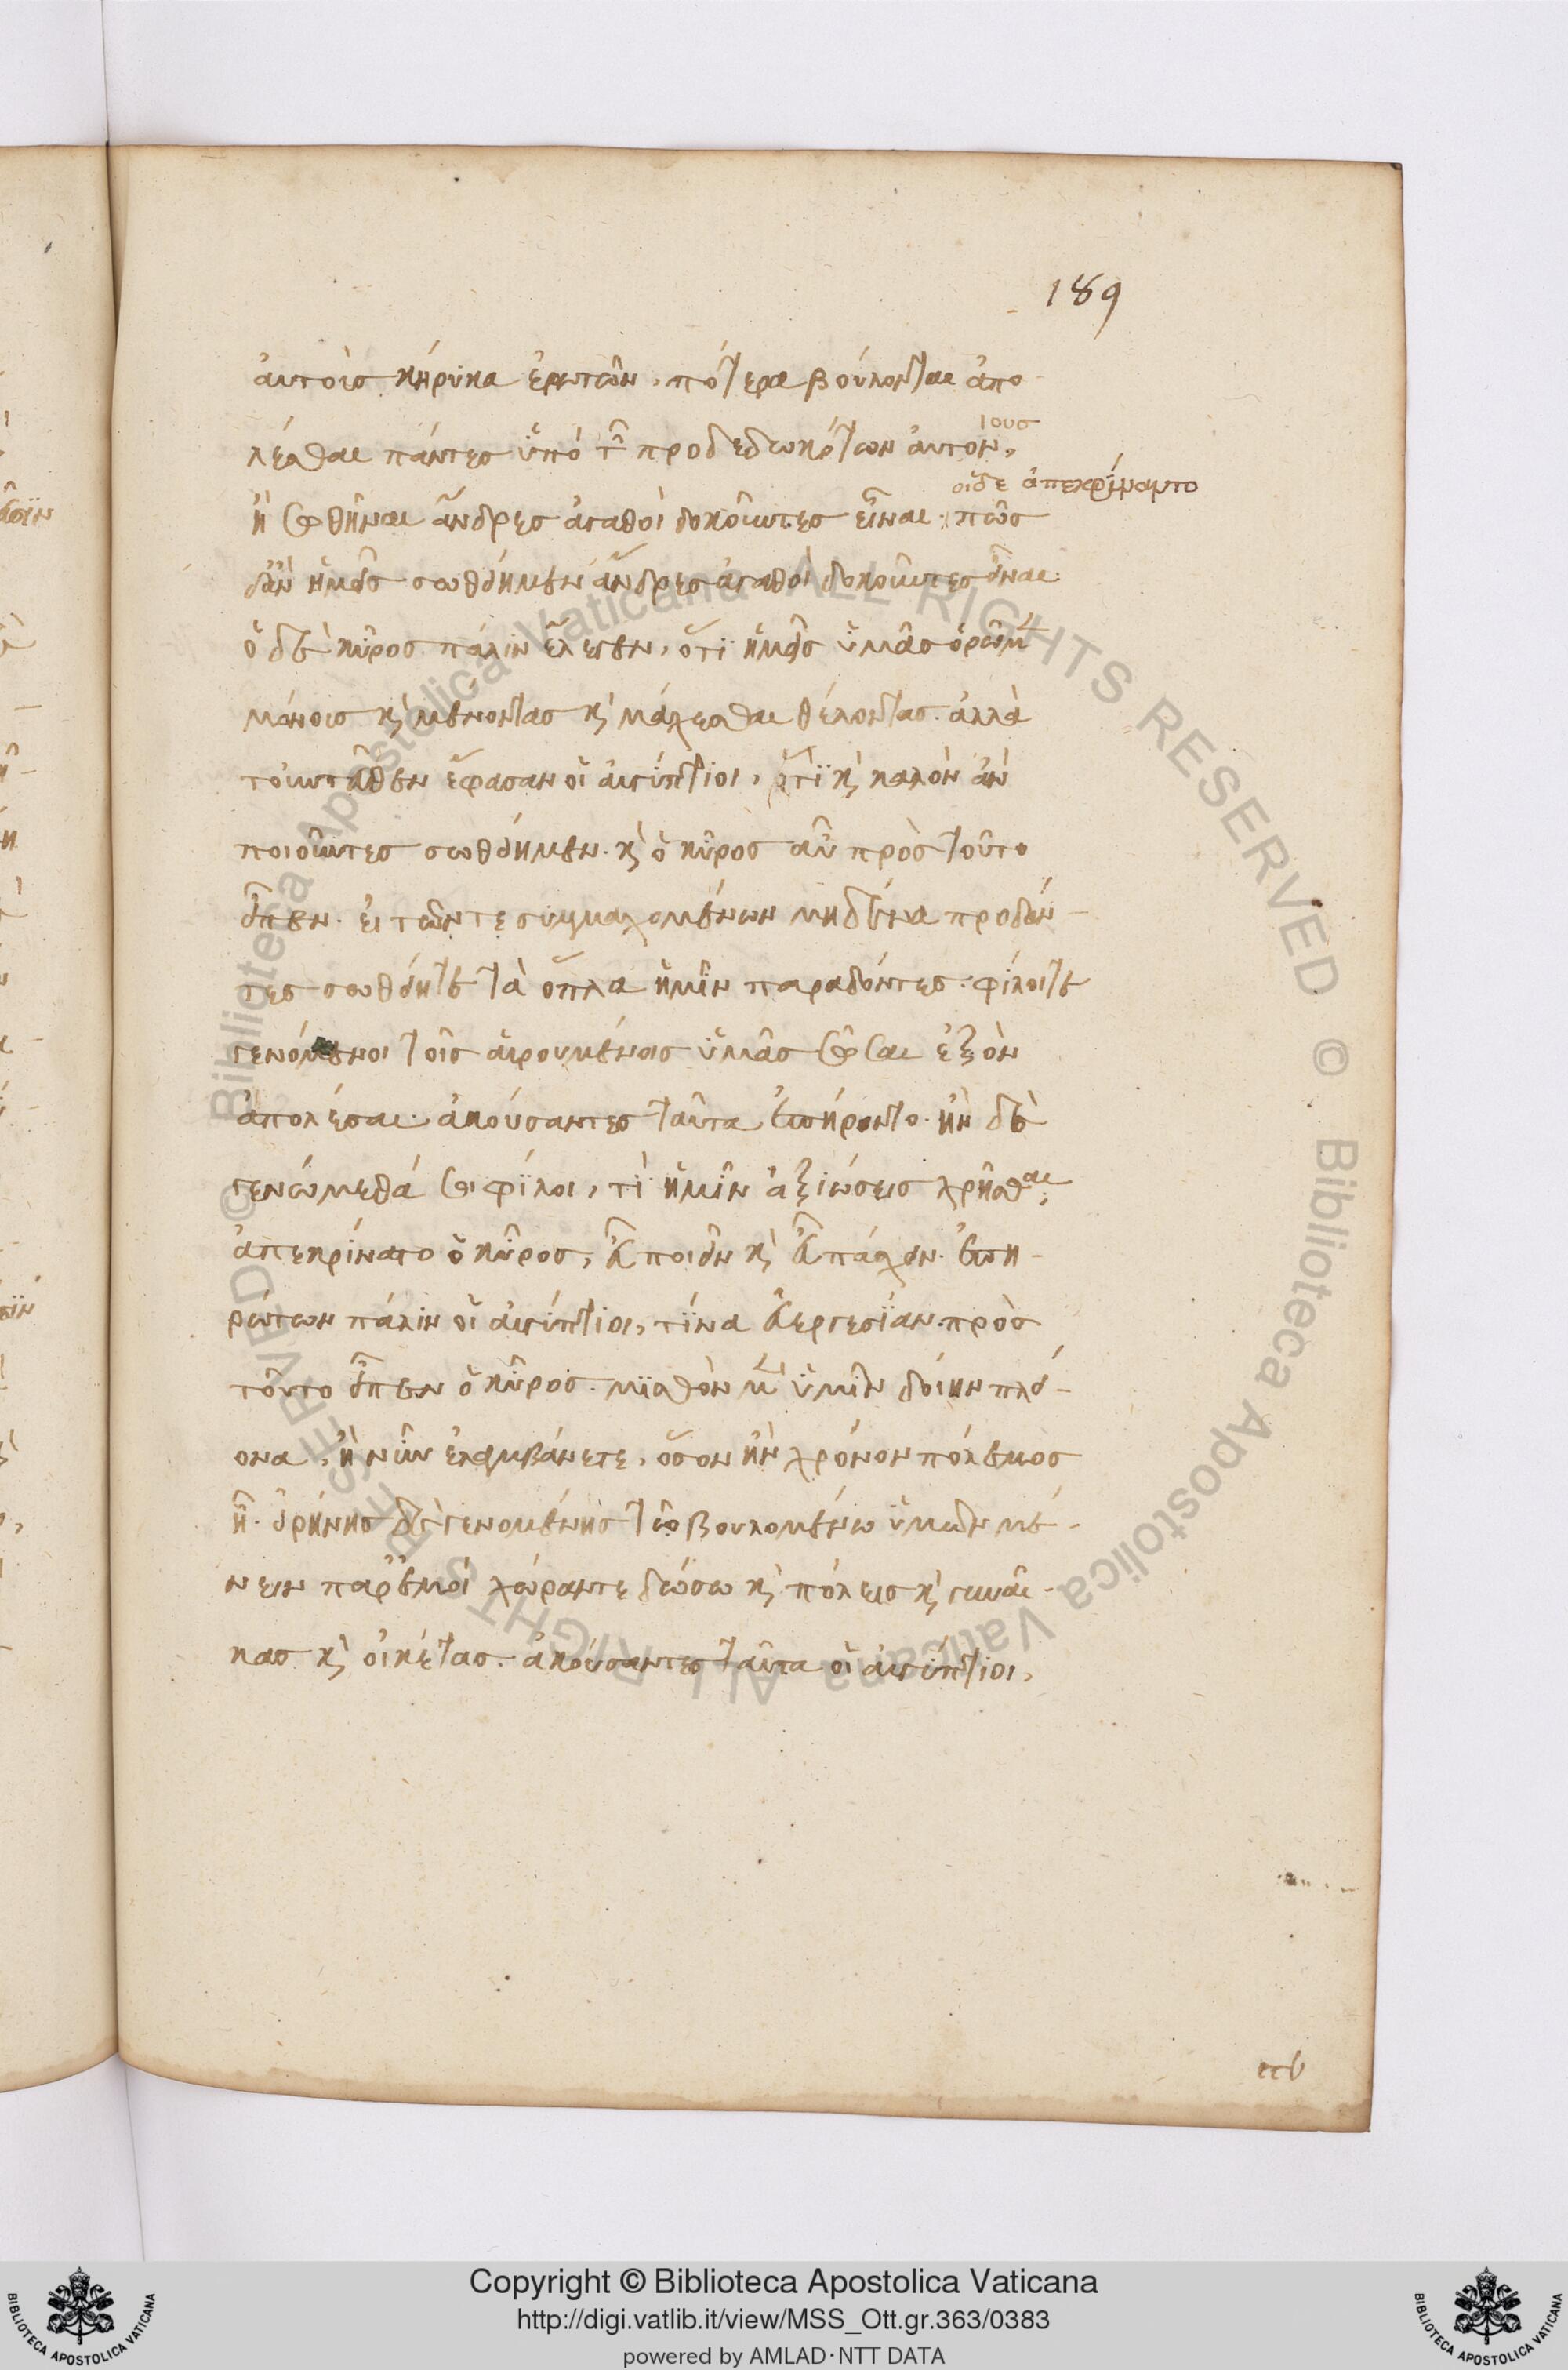 189
αὐτοῖς κήρυκα ἐρωτῶν, πότερα βούλονται ἀπο
λέσθαι πάντες ὑπὸ τῶν προδεδωκότων αὐτόν,
ιους
οἱ δὲ ἀπεκρίναντο
ἢ σωθῆναι ἄνδρες ἀγαθοὶ δοκοῦντες εἶναι. πῶς
δ' ἂν ἡμεῖς σωθείημεν ἄνδρες ἀγαθοὶ δοκοῦντες εἶναι
ὁ δὲ κῦρος πάλιν ἔλεγεν, ὅτι ἡμεῖς ὑμᾶς ὁρῶμεν
μόνους καὶ μένοντας καὶ μάχεσθαι θέλοντας. ἀλλὰ
τοὐντεῦθεν ἔφασαν οἱ αἰγύπτιοι, ὅτι καὶ καλὸν ἂν
ποιοῦντες σωθείημεν. καὶ ὁ κῦρος αὖ πρὸς τοῦτο
εἶπεν. εἰ τῶν τε συμμαχομένων μηδένα προδόν-
τες σωθείητε τὰ ὅπλα ἡμῖν παραδόντες. φίλοι τε
γενόμενοι τοῖς αἱρουμένοις ὑμᾶς σῶσαι ἐξὸν
ἀπολέσαι. ἀκούσαντες ταῦτα ἐπήροντο. ἢν δὲ
γενώμεθά σοι φίλοι, τί ἡμῖν ἀξιώσεις χρῆσθαι;
ἀπεκρίνατο ὁ κῦρος, εὖ ποιεῖν καὶ εὖ πάσχειν. ἐπη-
ρώτων πάλιν οἱ αἰγύπτιοι, τίνα εὐεργεσίαν. πρὸς
τοῦτο εἶπεν ὁ κῦρος. μισθὸν μὲν ὑμῖν δοίην πλεί-
ονα, ἢ νῦν ἐλαμβάνετε, ὅσον ἂν χρόνον πόλεμος
ᾖ. εἰρήνης δὲ γενομένης τῷ βουλομένῳ ὑμῶν μέ-
νειν παρ' ἐμοὶ χώραν τε δώσω καὶ πόλεις καὶ γυναῖ-
κας καὶ οἰκέτας. ἀκούσαντες ταῦτα οἱ αἰγύπτιοι,
Copyright © Biblioteca Apostolica Vaticana
http://digi.vatlib.it/view/MSS_Ott.gr.363/0383
powered by AMLAD·NTT DATA